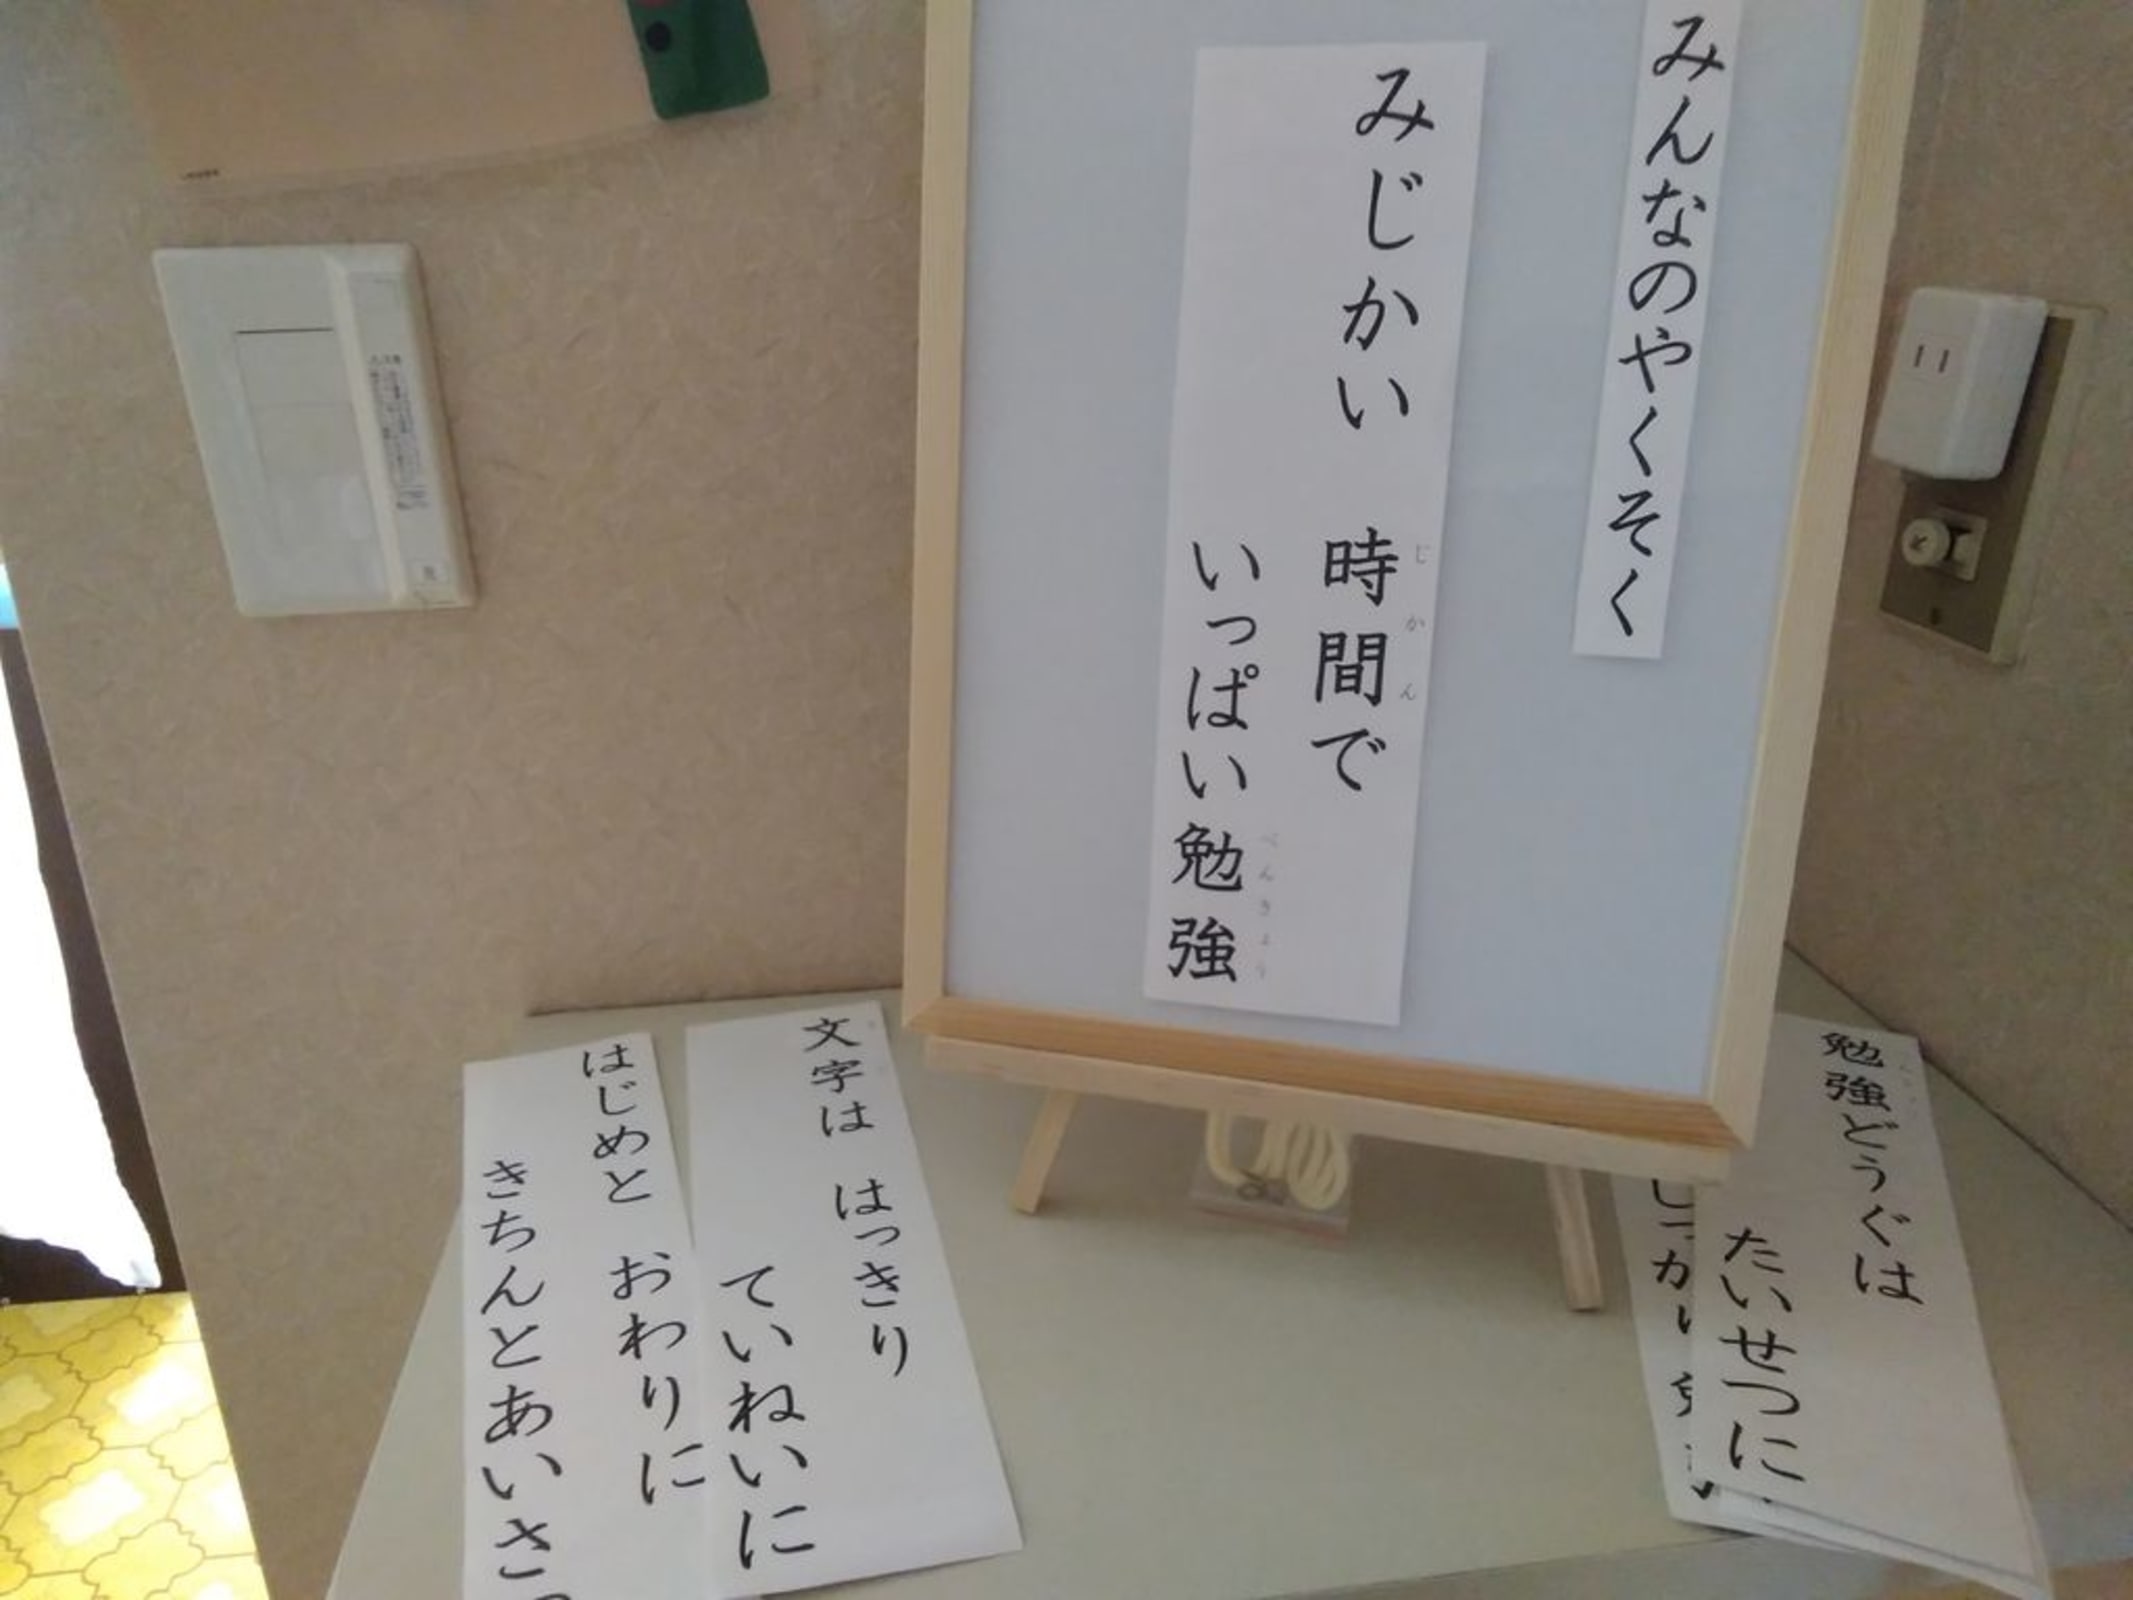 みんなのやくそく
みじかい 時間で
じかん
いっぱい勉強
べんきょう
勉強どうぐは
たいせつに
文字は はっきり
ていねいに
はじめと おわりに
きちんとあいさ